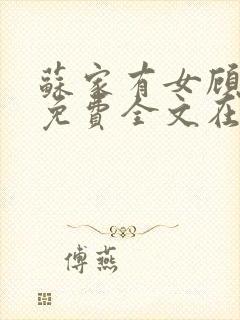 蘇家有女顾
免費全文在
傅燕